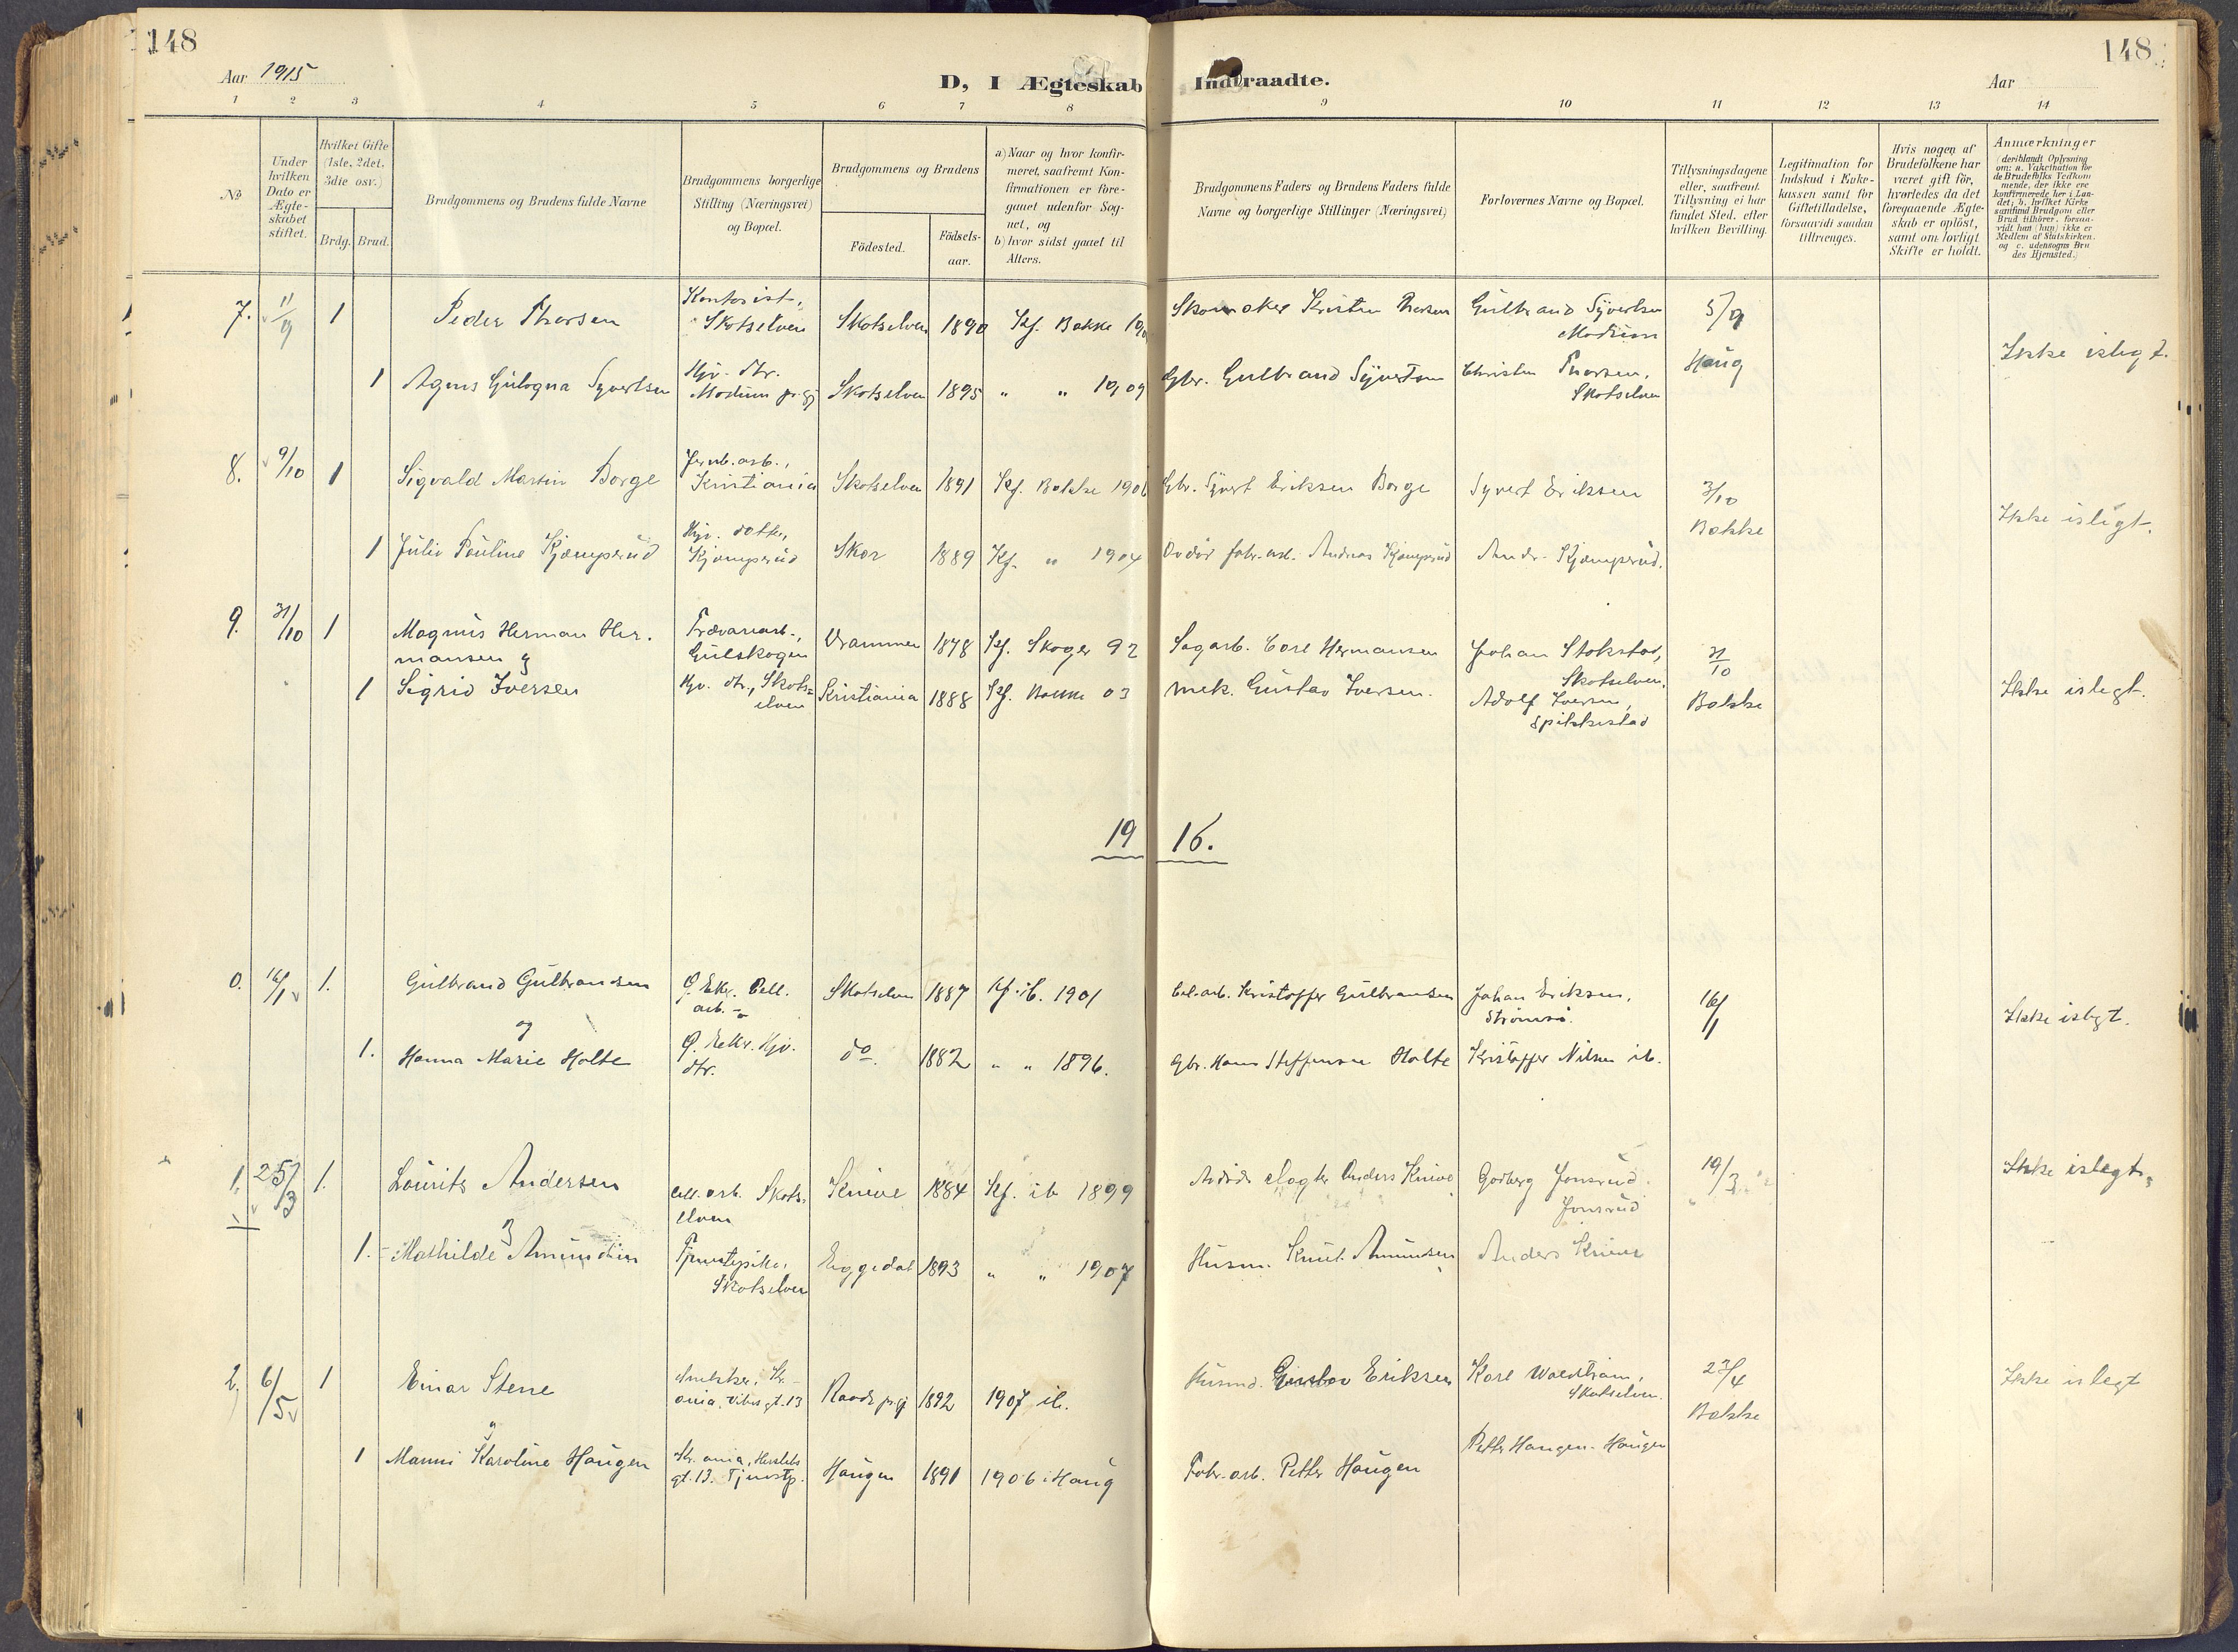 148
148
Aar 1915
D, I Ægteskab Indtraadte.
Aar
1 2 3 4 5 6 7 8 9 10 11 12 13 14
No
Under hvilken Dato er Ægteskabet stiftet.
Hvilket Gifte (1ste, 2det. 3die osv.)
Brdg. Brud.
Brudgommens og Brudens fulde Navne
Brudgommens borgerlige Stilling (Næringsvei) og Bopæl.
Brudgommens og Brudens
Födested.
Födsels-aar.
a) Naar og hvor konfirmeret, saafremt Konfirmationen er foregaaet udenfor Sognet, og
b) hvor sidst gaaet til Alters.
Brudgommens Faders og Brudens Faders fulde Navne og borgerlige Stillinger (Næringsvei)
Forlovernes Navne og Bopæl.
Tillysningsdagene eller, saafremt Tillysning ei har fundet Sted, efter hvilken Bevilling.
Legitimation for Indskud i Enkekassen samt for Giftetilladelse, forsaavidt saadan tiltrænges.
Hvis nogen af Brudefolkene har været gift för, hvorledes da det foregaaende Ægteskab er oplöst, samt om lovligt Skifte er holdt.
Anmærkninger (deriblandt Oplysning om: a. Vaksination for de Brudefolks Vedkommende, der ikke ere konfirmerede her i Landet; b. hvilket Kirkesamfund Brudgom eller Brud tilhörer, forsaavidt han (hun) ikke er Medlem af Statskirken, og c. udensogns Brudes Hjemsted.)
7. 11/9 1 Peder Thorsen Kontorist, Skotselven Skotselven 1890 Kf. Bakke Skomaker Kristen Thorsen Gulbrand Syvertsen Modum 5/9
Ikkeislegt.
1 Agnes Gulogna Syvertsen Hjv. dtr. Modum pr.gj Skotselven 1895 " " 1909 Gbr. Gulbrand Syvertsen Christen Thorsen, Skotselven Haug
8. 9/10 1 Sigvald Martin Borge Jernb.arb., Kristiania Skotselven 1891 Kf. Bakke 1906 Gbr. Syvert Eriksen Borge Syvert Eriksen 3/10
Bakke Ikke islegt.
1 Julie Pauline Kjæmperud Hjv. datter, Kjæmperud Skar 1889 Kf. " 1904 fabr.arb. Andreas Kjæmperud Andr. Kjæmperud.
9. 31/10 1 Magnus Herman Hermansen og Trævarearb., Gulskogen Drammen 1878 Kf. Skoger 92 Sagarb. Carl Hermansen Johan Stokstad, Skotselven, 31/10
1 Sigrid Iversen Hjv. dtr., Skotselven Kristiania 1888 Kf. Bakke 03 mek. Gustav Iversen. Adolf Iversen, Spikkestad Bakke Ikke islegt.
1916.
0. 16/1 1. Gulbrand Gulbrandsen Ø. Eker. Cell. arb. Skotselven 1887 Kf. ib. 1901 Cel.arb. Kristoffer Gulbransen Johan Eriksen, Strømsø. 16/1
og
Ikke islegt.
1. Hanna Marie Holte Ø. Eker. Hjv. dtr. do. 1882 " " 1896. Gbr. Hans Steffensen Holte Kristoffer Nilsen ib.
1. 25/3 1. Lauritz Andersen Cell.arb. Skotselven Knive 1884 Kf. ib 1899 Anders Knive Godberg Jonsrud Jonsrud 19/3 Ikke islegt.
og
1. Mathilde Amundsen Tjenestepike, Skotselven Eggedal 1893 " " 1907 Husm. Knut Amundsen Anders Knive
2. 6/5 1 Einar Stene Snekker, Kr.ania, Vibes gt. 13 Raade pr.gj 1892 1907 ib. Husmd. Gustav Eriksen Karl Waldtham, Skotselven. 23/4
Bakke Ikke islegt
og
1 Manni Karoline Haugen Kr.ania, Herslebs gt. 13. Tjenestp. Haugen 1891 1906 i Haug Fabr.arb. Petter Haugen Petter Haugen - Haugen